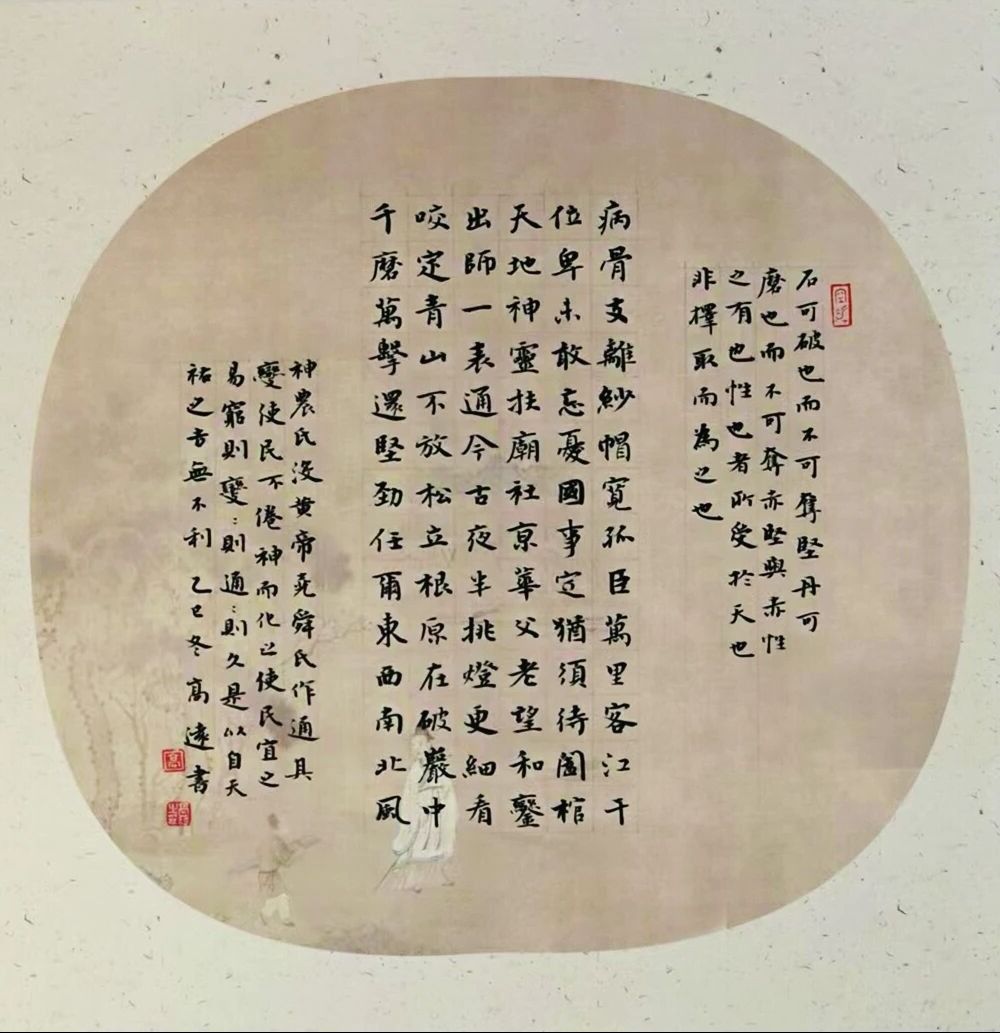 石可破也而不可奪堅丹可
磨也而不可奪赤堅與赤性
之有也性也者所受於天也
非擇取而為之也
病骨支離紗帽寬孤臣萬里客江干
位卑未敢忘憂國事定猶須待闔棺
天地神靈扶廟社京華父老望和鑾
出師一表通今古夜半挑燈更細看
咬定青山不放松立根原在破巖中
千磨萬擊還堅勁任爾東西南北風
神農氏沒黄帝堯舜氏作通其
變使民不倦神而化之使民宜之
易窮則變:則通:則久是以自天
祐之吉無不利 乙巳冬 高遠書
高